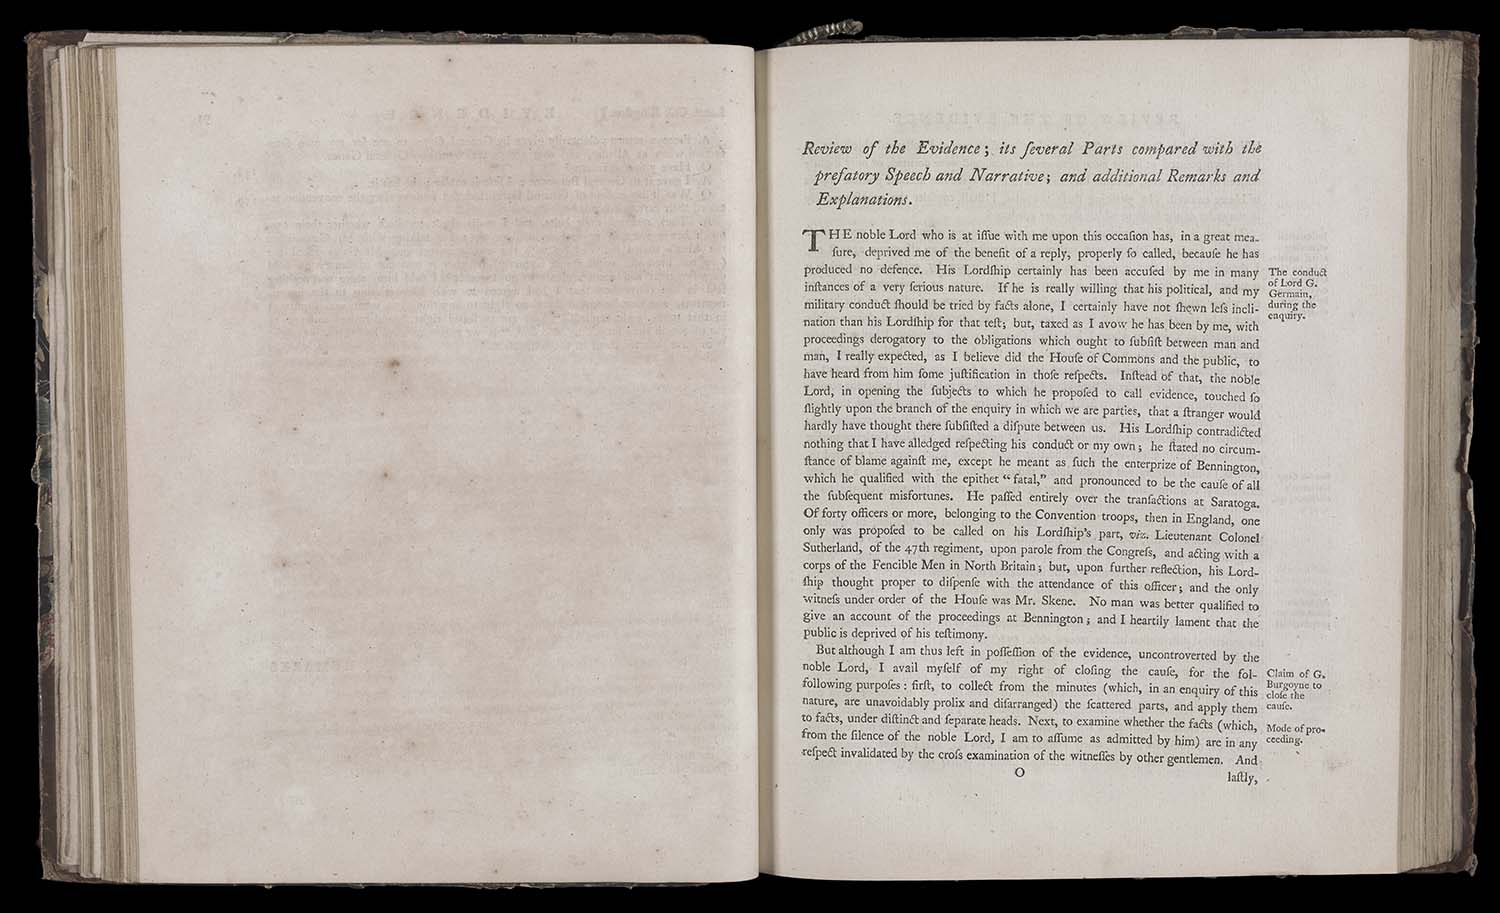 Review of the Evidence; its ſeveral Parts compared with the
prefatory Speech and Narrative; and additional Remarks and
Explanations.
THE noble Lord who is at iſſue with me upon this occaſion has, in a great mea-
ſure, deprived me of the benefit of a reply, properly ſo called, becauſe he has
produced no defence. His Lordſhip certainly has been accuſed by me in many
inſtances of a very ſerious nature. If he is really willing that his political, and my
military conduct ſhould be tried by facts alone, I certainly have not ſhewn leſs incli-
nation than his Lordſhip for that teſt; but, taxed as I avow he has been by me, with
proceedings derogatory to the obligations which ought to ſubſiſt between man and
man, I really expected, as I believe did the Houſe of Commons and the public, to
have heard from him ſome juſtification in thoſe reſpects. Inſtead of that, the noble
Lord, in opening the ſubjects to which he propoſed to call evidence, touched ſo
ſlightly upon the branch of the enquiry in which we are parties, that a ſtranger would
hardly have thought there ſubſiſted a diſpute between us. His Lordſhip contradicted
nothing that I have alledged reſpecting his conduct or my own; he ſtated no circum-
ſtance of blame againſt me, except he meant as ſuch the enterprize of Bennington,
which he qualified with the epithet "fatal," and pronounced to be the cauſe of all
the ſubſequent misfortunes. He paſſed entirely over the tranſactions at Saratoga.
Of forty officers or more, belonging to the Convention troops, then in England, one
only was propoſed to be called on his Lordſhip's part, viz. Lieutenant Colonel
Sutherland, of the 47th regiment, upon parole from the Congreſs, and acting with a
corps of the Fencible Men in North Britain; but, upon further reflection, his Lord-
ſhip thought proper to diſpenſe with the attendance of this officer; and the only
witneſs under order of the Houſe was Mr. Skene. No man was better qualified to
give an account of the proceedings at Bennington; and I heartily lament that the
public is deprived of his teſtimony.
But although I am thus left in poſſeſſion of the evidence, uncontroverted by the
noble Lord, I avail myſelf of my right of cloſing the cauſe, for the fol-
following purpoſes: firſt, to collect from the minutes (which, in an enquiry of this
nature, are unavoidably prolix and diſarranged) the ſcattered parts, and apply them
to facts, under diſtinct and ſeparate heads. Next, to examine whether the facts (which,
from the ſilence of the noble Lord, I am to aſſume as admitted by him) are in any
reſpect invalidated by the croſs examination of the witneſſes by other gentlemen. And
O
laſtly,
The conduct
of Lord G.
Germain,
during the
enquiry.
Claim of G.
Burgoyne to
cloſe the
cauſe.
Mode of pro-
ceeding.